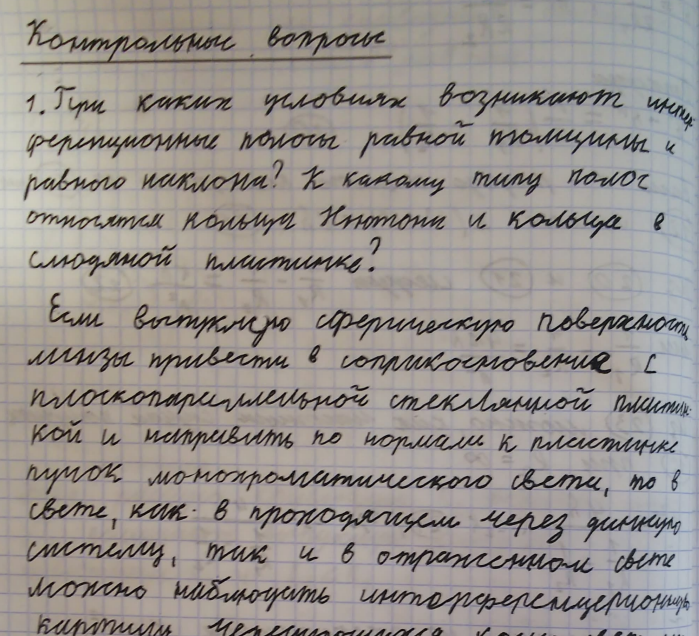 Контрольные вопросы
1. При каких условиях возникают интер
ференционные полосы равной толщины и
равного наклона? К какому типу полос
относятся кольца Ньютона и кольца в
слюдяной пластинке?
Если выпуклую сферическую поверхность
линзы привести в соприкосновение с
плоскопараллельной стеклянной пластин-
кой и направить по нормали к пластинке
пучок монохроматического света, то в
свете, как в проходящем через данную
систему, так и в отраженном свете
можно наблюдать интерференционную
картину чередующихся